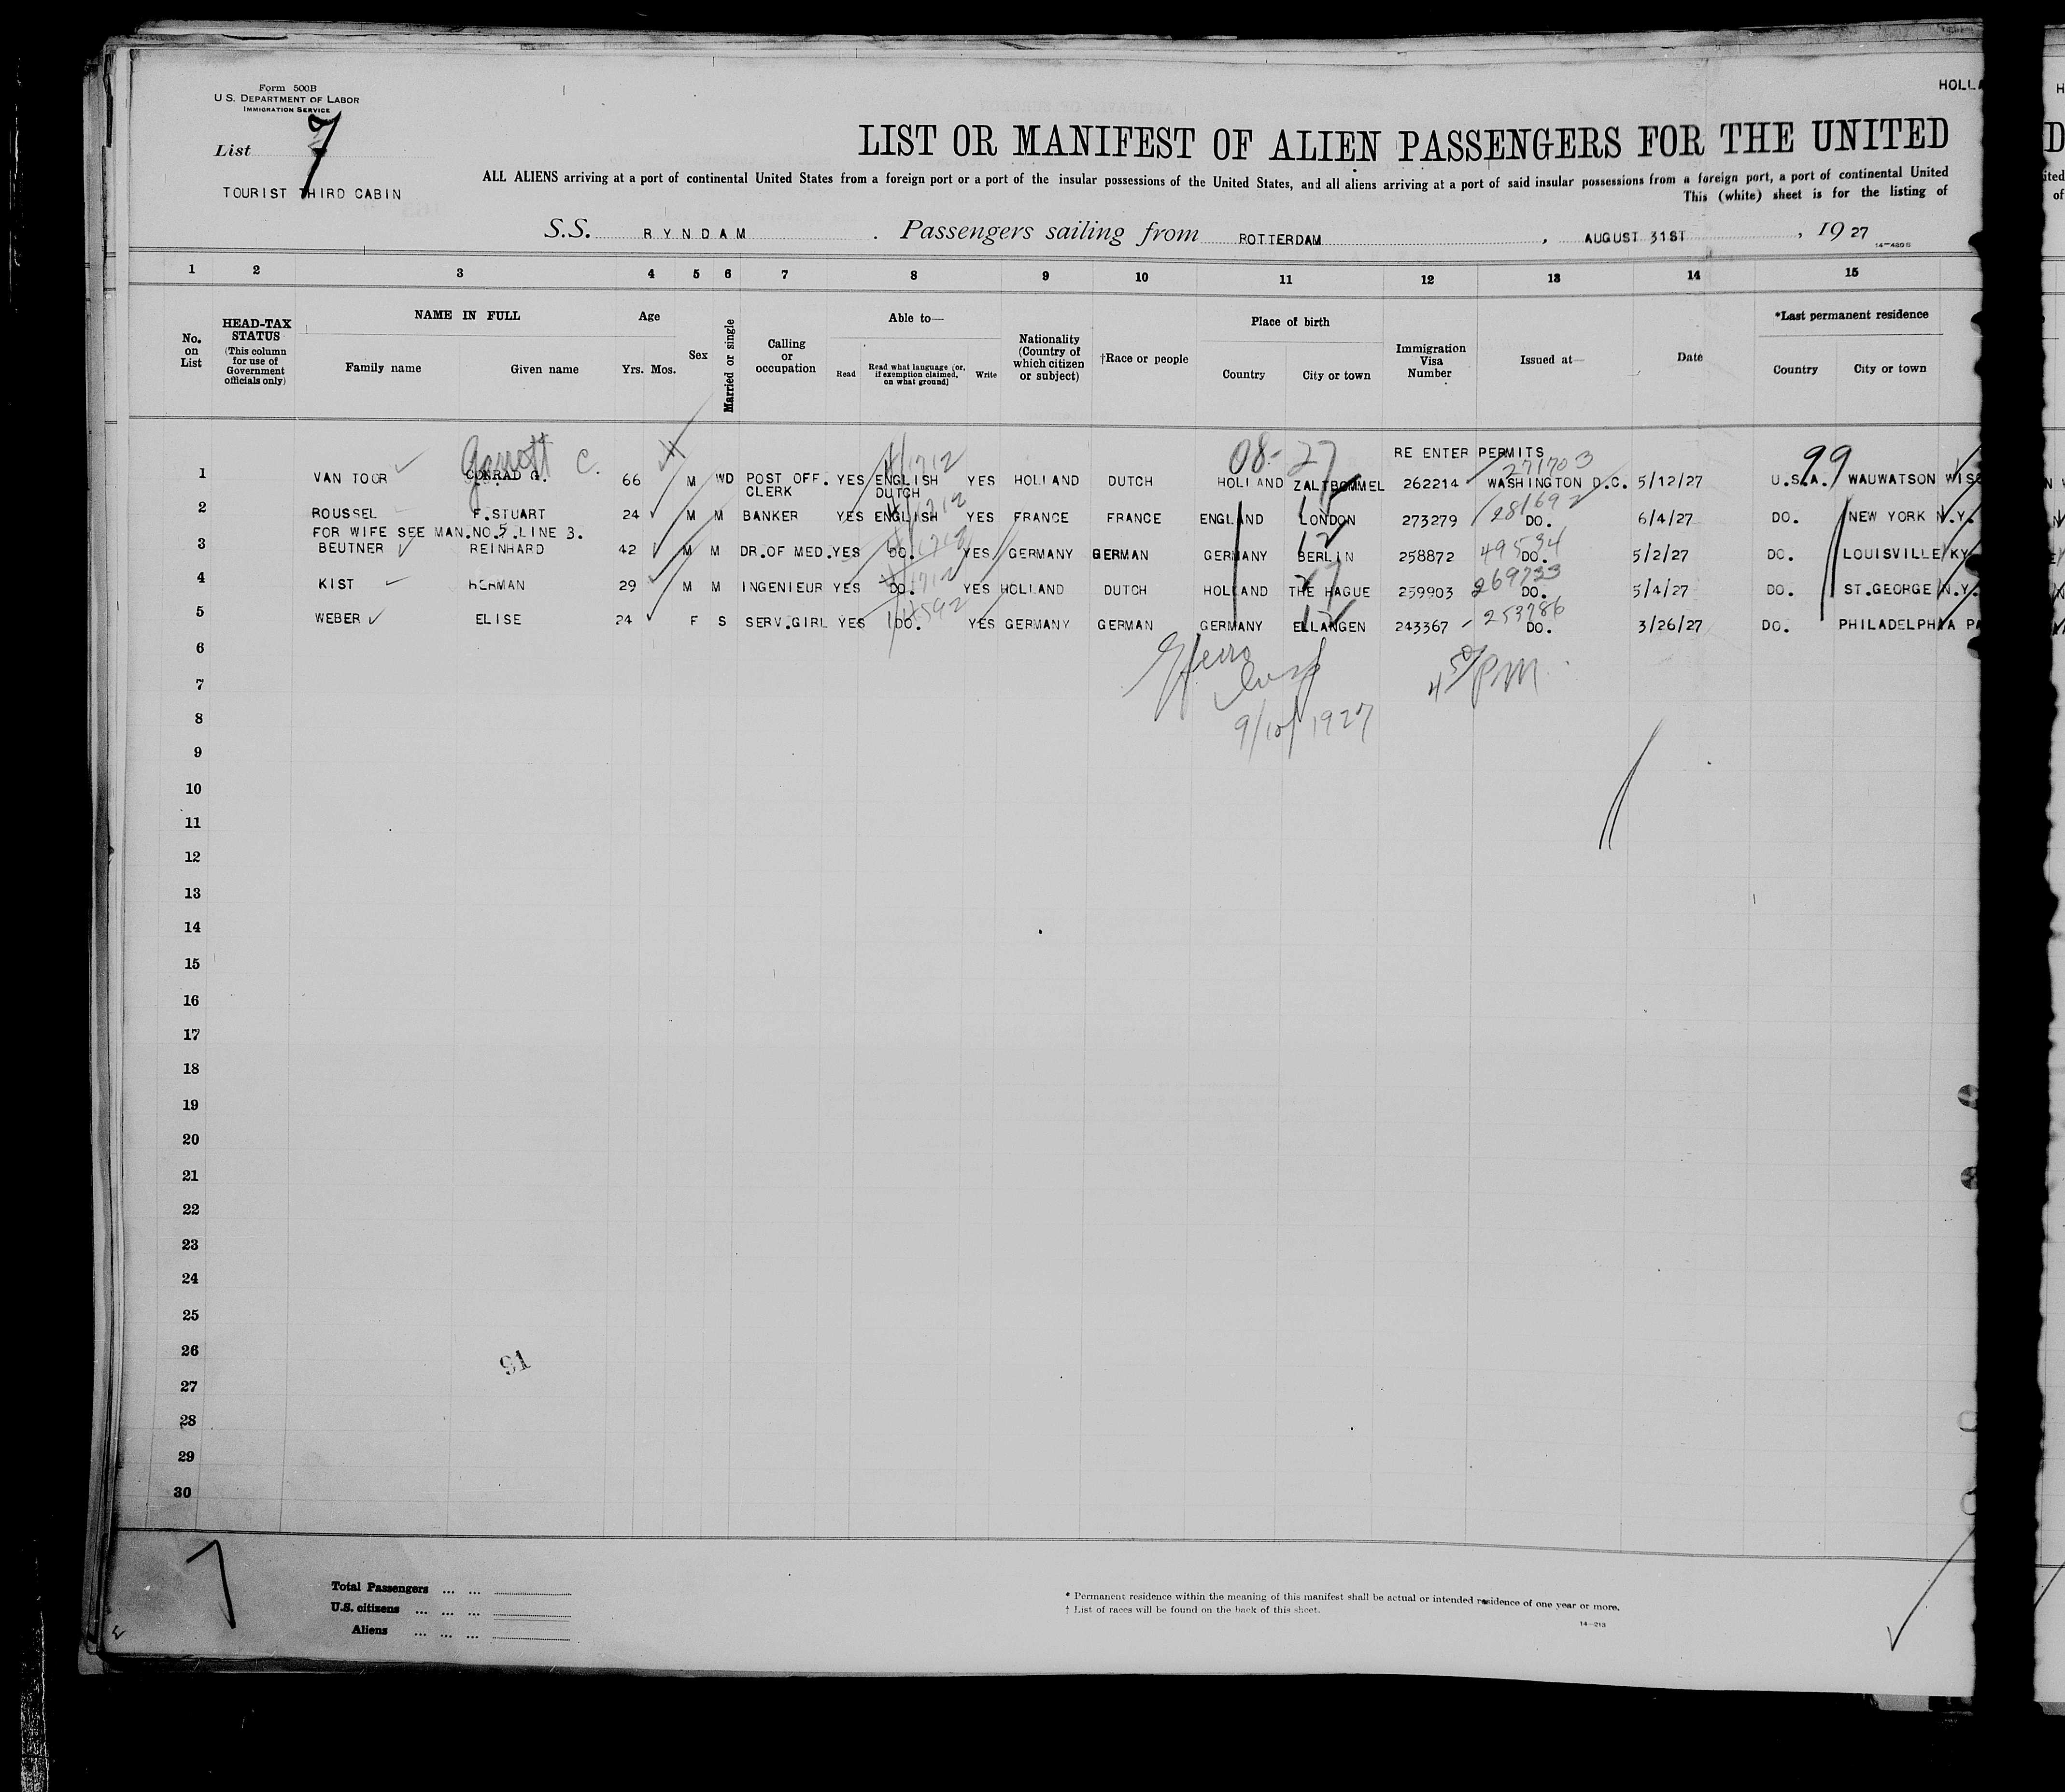 Form 500B
U.S. DEPARTMENT OF LABOR
IMMIGRATION SERVICE
HOLLA
List 7
LIST OR MANIFEST OF ALIEN PASSENGERS FOR THE UNITED
TOURIST THIRD CABIN
ALL ALIENS arriving at a port of continental United States from a foreign port or a port of the insular possessions of the United States, and all aliens arriving at a port of said insular possessions from a foreign port, a port of continental United
This (white) sheet is for the listing of
S.S. RYNDAM. Passengers sailing from ROTTERDAM, AUGUST 31ST, 1927
1 2 3 4 5 6 7 8 9 10 11 12 13 14 15
No. on List
HEAD-TAX STATUS (This column for use of Government officials only)
NAME IN FULL
Family name Given name
Age
Yrs. Mos.
Sex
Married or single
Calling or occupation
Able to—
Read Read what language [or, if exemption claimed, on what ground] Write
Nationality (Country of which citizen or subject)
†Race or people
Place of birth
Country City or town
Immigration Visa Number
Issued at—
Date
*Last permanent residence
Country City or town
Garrott C. 08-27 RE ENTER PERMITS 99
271703
1 VAN TOOR CONRAD G. 66 M WD POST OFF. CLERK YES ENGLISH DUTCH YES HOLLAND DUTCH HOLLAND ZALTBOMMEL 262214 WASHINGTON D.C. 5/12/27 U.S.A. WAUWATSON WISC
281692
2 ROUSSEL F.STUART 24 M M BANKER YES ENGLISH YES FRANCE FRANCE ENGLAND LONDON 273279 DO. 6/4/27 DO. NEW YORK N.Y.
FOR WIFE SEE MAN.NO.5 LINE 3.
49534
3 BEUTNER REINHARD 42 M M DR.OF MED. YES DO. YES GERMANY GERMAN GERMANY BERLIN 258872 DO. 5/2/27 DO. LOUISVILLE KY
269733
4 KIST HERMAN 29 M M INGENIEUR YES DO. YES HOLLAND DUTCH HOLLAND THE HAGUE 259903 DO. 5/4/27 DO. ST.GEORGE N.Y.
253786
5 WEBER ELISE 24 F S SERV.GIRL YES DO. YES GERMANY GERMAN GERMANY ELLANGEN 243367 DO. 3/26/27 DO. PHILADELPHIA PA
6
7 4 50 PM
8 9/10/1927
9
10
11
12
13
14
15
16
17
18
19
20
21
22
23
24
25
26 91
27
28
29
30
Total Passengers ... ...
U.S. citizens ... ... ...
Aliens ... ... ...
* Permanent residence within the meaning of this manifest shall be actual or intended residence of one year or more.
† List of races will be found on the back of this sheet.
14—213